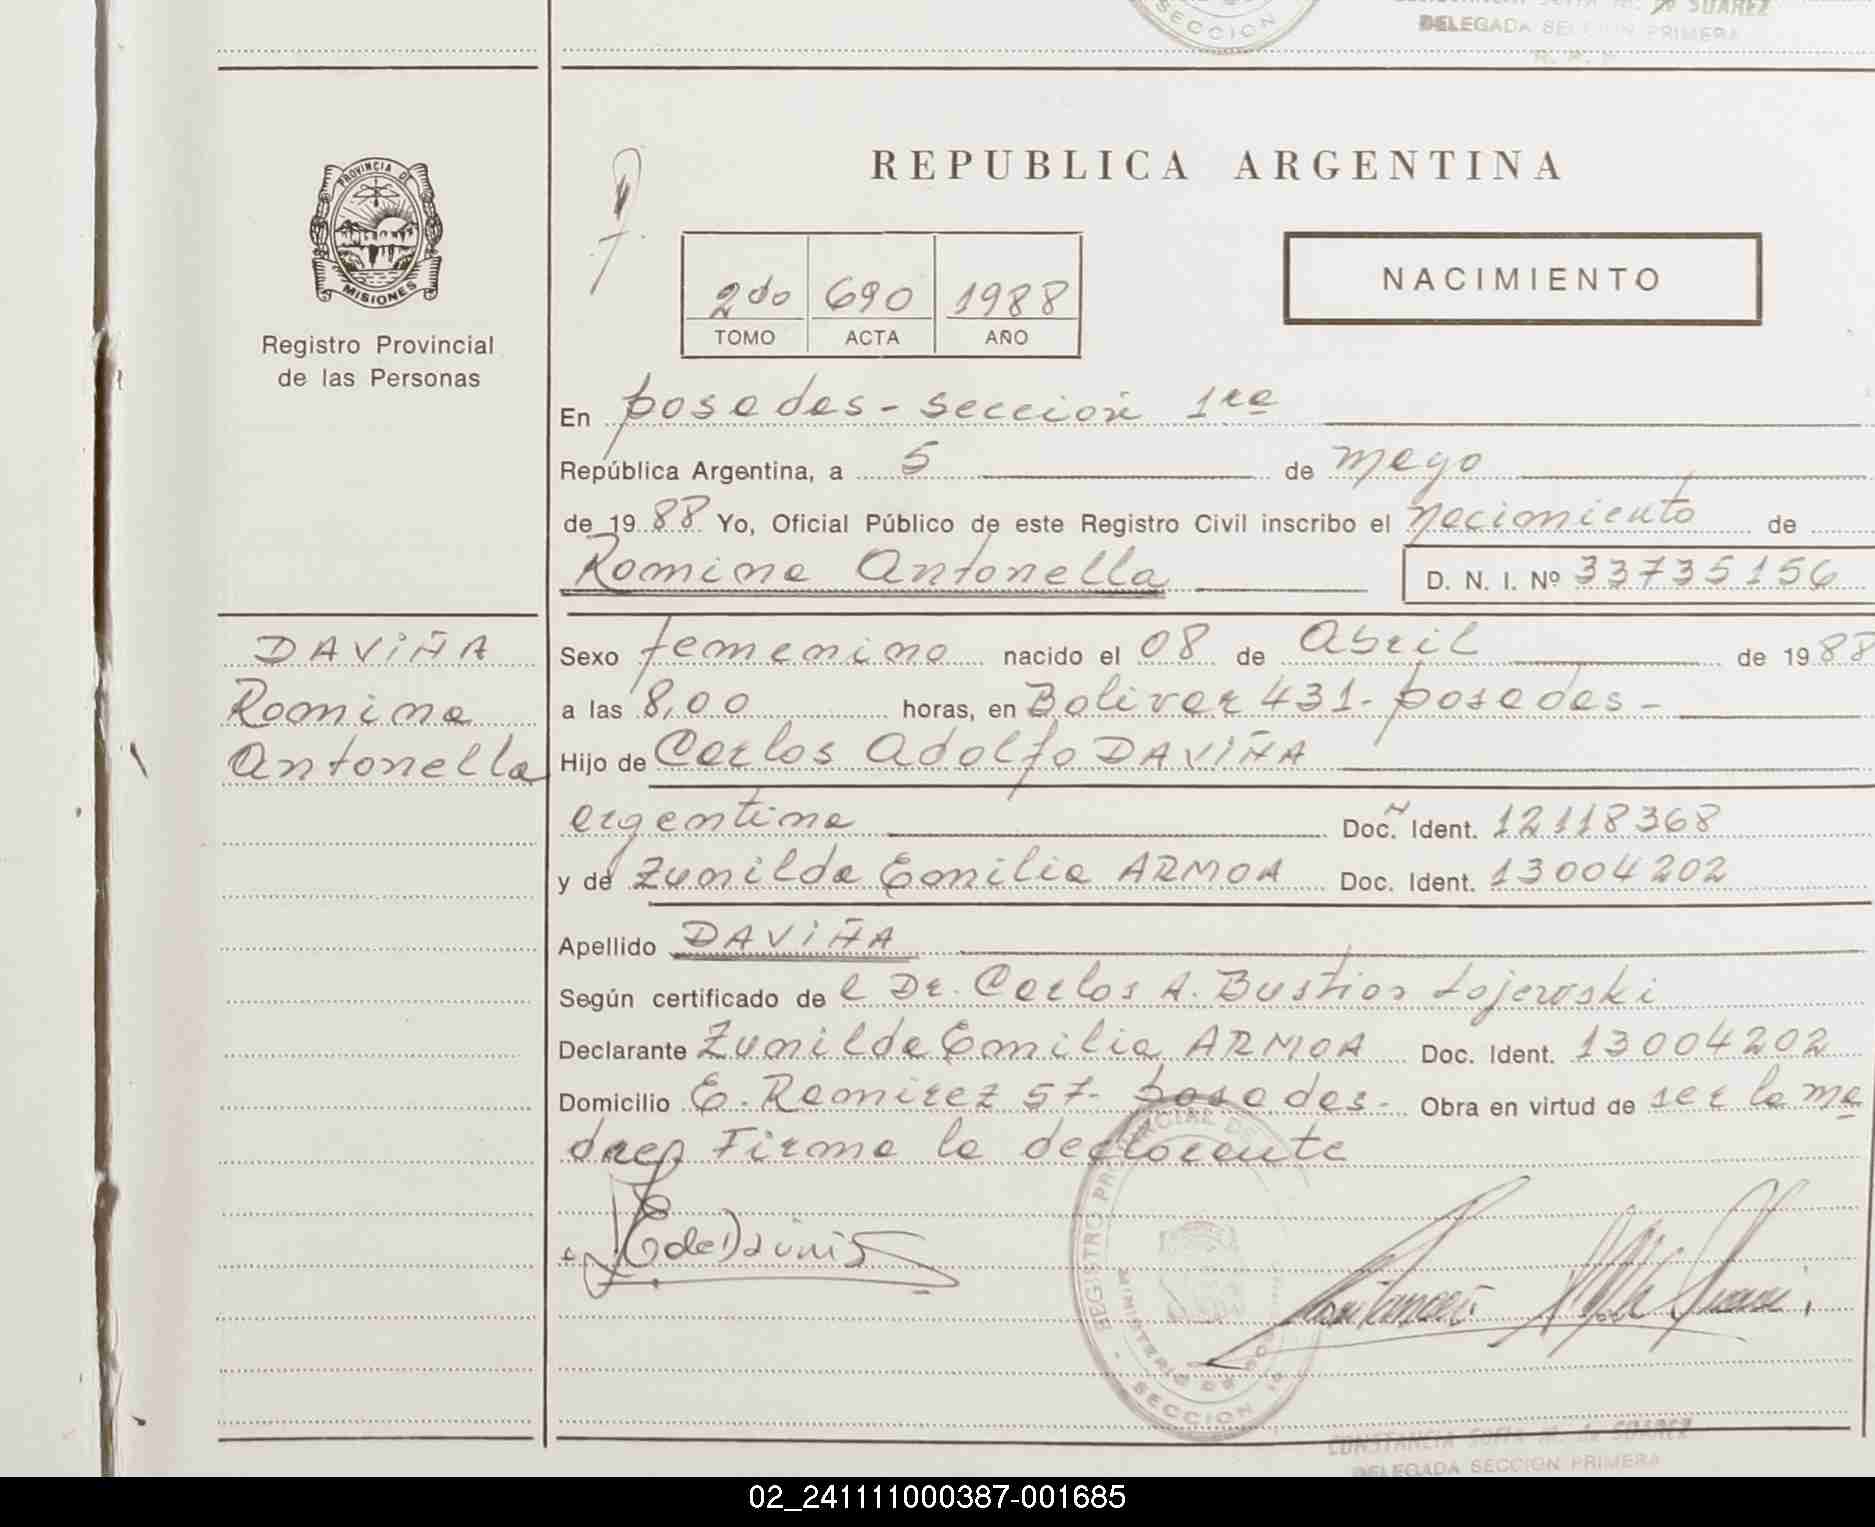 SECCION
DELEGADA SECCION PRIMERA
R. P. P.
PROVINCIA DE
MISIONES
Registro Provincial
de las Personas
REPUBLICA ARGENTINA
NACIMIENTO
2do 690 1988
TOMO ACTA AÑO
En posadas - sección 1ra
República Argentina, a 5 de mayo
de 1988 Yo, Oficial Público de este Registro Civil inscribo el nacimiento de
Romina Antonella D. N. I. Nº 33735156
DAVIÑA
Romina
Antonella
Sexo femenino nacido el 08 de Abril de 1988
a las 8,00 horas, en Bolivar 431 - posadas -
Hijo de Carlos Adolfo DAVIÑA
argentina Doc. Ident. 12118368
y de Zunilda Emilia ARMOA Doc. Ident. 13004202
Apellido DAVIÑA
Según certificado de l Dr. Carlos A. Bustios
Declarante Zunilda Emilia ARMOA Doc. Ident. 13004202
Domicilio E. Ramirez 57 - posadas - Obra en virtud de ser la ma
dre Firma la declarante
REGISTRO PROVINCIAL DE
MINISTERIO DE GOBIERNO
SECCION 1ª
CONSTANCIA SOFIA M. de SUAREZ
DELEGADA SECCION PRIMERA
02_241111000387-001685